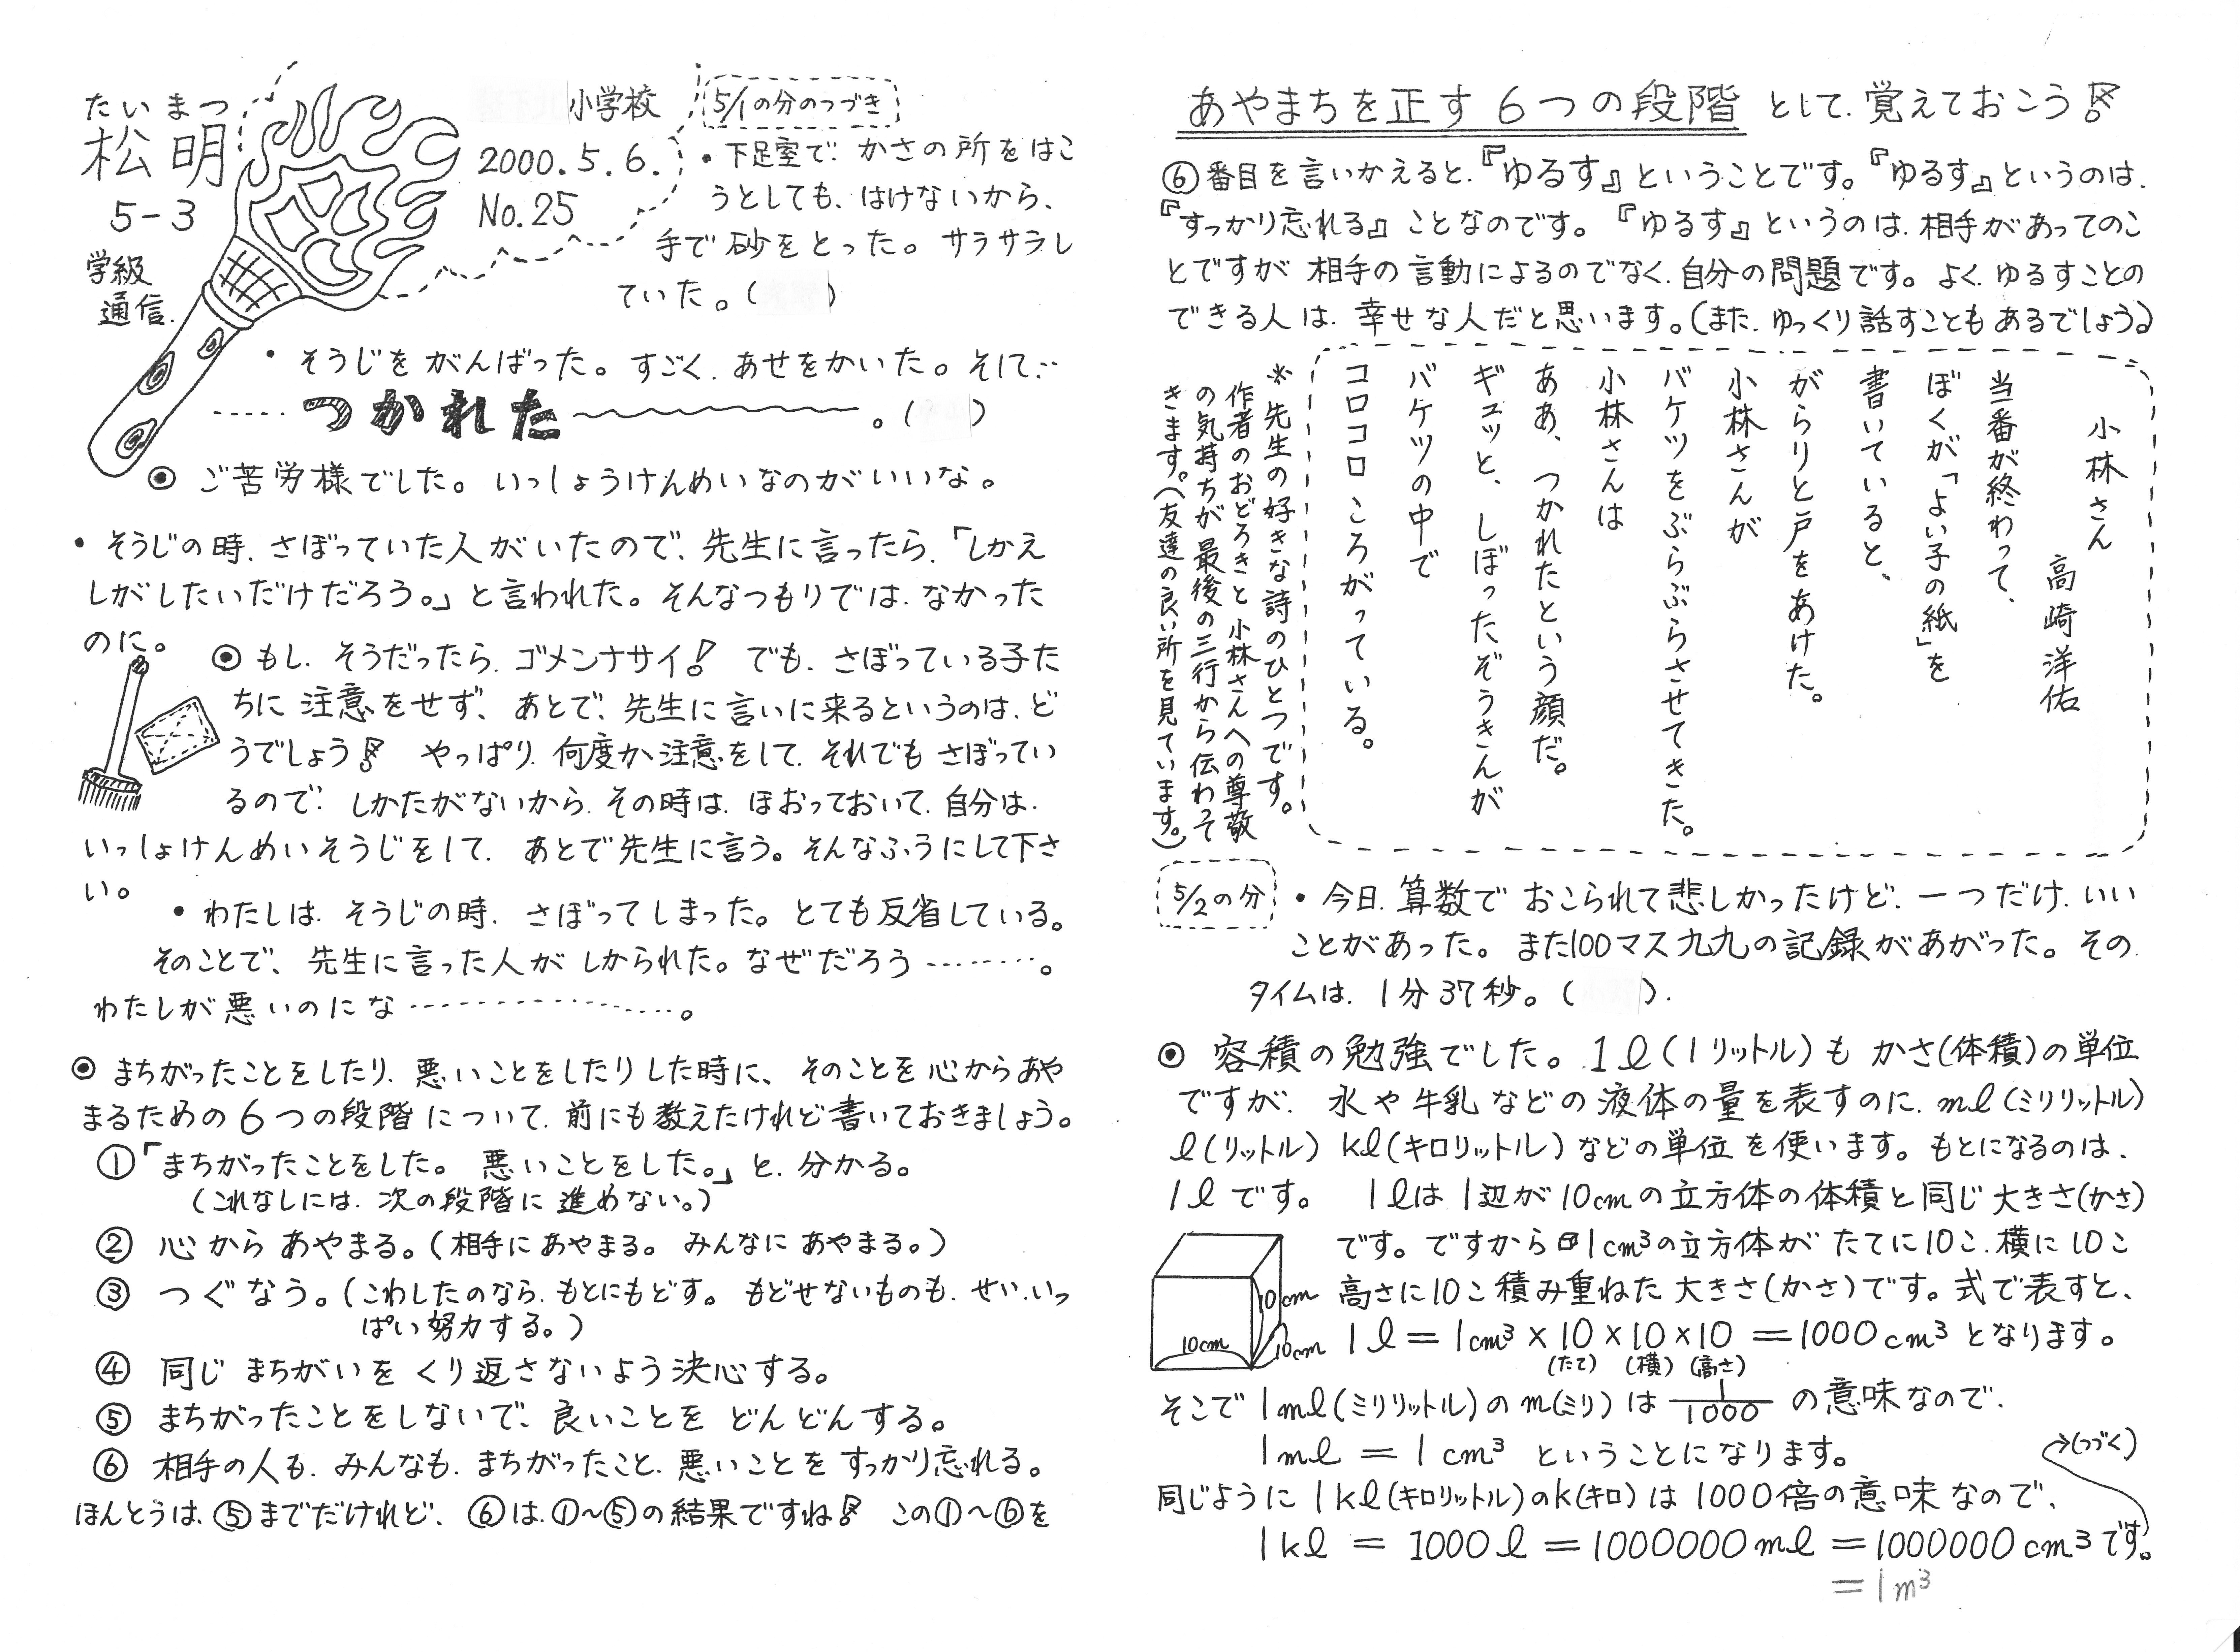 たいまつ
松明
5-3
学級
通信.
小学校
2000.5.6.
No.25
5/1の分のつづき
・下足室で、かさの所をはこ
うとしても、はけないから、
手で砂をとった。サラサラし
ていた。（　　）
・そうじをがんばった。すごく、あせをかいた。そして…
……つかれた〜〜〜〜。（　　）
◉ ご苦労様でした。いっしょうけんめいなのがいいな。
・そうじの時、さぼっていた人がいたので、先生に言ったら、「しかえ
しがしたいだけだろう。」と言われた。そんなつもりでは、なかった
のに。
◉ もし、そうだったら、ゴメンナサイ! でも、さぼっている子た
ちに注意をせず、あとで、先生に言いに来るというのは、ど
うでしょう!? やっぱり、何度か注意をして、それでもさぼってい
るので、しかたがないから、その時は、ほおっておいて、自分は、
いっしょけんめいそうじをして、あとで先生に言う。そんなふうにして下さ
い。
・わたしは、そうじの時、さぼってしまった。とても反省している。
そのことで、先生に言った人がしかられた。なぜだろう………。
わたしが悪いのにな………………。
◉ まちがったことをしたり、悪いことをしたりした時に、そのことを心からあや
まるための6つの段階について、前にも教えたけれど書いておきましょう。
①「まちがったことをした。悪いことをした。」と、分かる。
（これなしには、次の段階に進めない。）
② 心からあやまる。（相手にあやまる。みんなにあやまる。）
③ つぐなう。（こわしたのなら、もとにもどす。もどせないものも、せい、いっ
ぱい努力する。）
④ 同じまちがいをくり返さないよう決心する。
⑤ まちがったことをしないで、良いことをどんどんする。
⑥ 相手の人も、みんなも、まちがったこと、悪いことをすっかり忘れる。
ほんとうは、⑤までだけれど、⑥は、①〜⑤の結果ですね!? この①〜⑥を
あやまちを正す6つの段階として、覚えておこう!?
⑥番目を言いかえると、『ゆるす』ということです。『ゆるす』というのは、
『すっかり忘れる』ことなのです。『ゆるす』というのは、相手があってのこ
とですが相手の言動によるのでなく、自分の問題です。よく、ゆるすことの
できる人は、幸せな人だと思います。（また、ゆっくり話すこともあるでしょう。）
小林さん
高崎洋佑
当番が終わって、
ぼくが「よい子の紙」を
書いていると、
がらりと戸をあけた。
小林さんが
バケツをぶらぶらさせてきた。
小林さんは
ああ、つかれたという顔だ。
ギュッと、しぼったぞうきんが
バケツの中で
コロコロころがっている。
※先生の好きな詩のひとつです。
作者のおどろきと小林さんへの尊敬
の気持ちが最後の三行から伝わって
きます。（友達の良い所を見ています。）
5/2の分
・今日、算数でおこられて悲しかったけど、一つだけ、いい
ことがあった。また100マス九九の記録があがった。その
タイムは、1分37秒。（　　）.
◉ 容積の勉強でした。1ℓ（1リットル）もかさ（体積）の単位
ですが、水や牛乳などの液体の量を表すのに、mℓ（ミリリットル）
ℓ（リットル）kℓ（キロリットル）などの単位を使います。もとになるのは、
1ℓです。 1ℓは1辺が10cmの立方体の体積と同じ大きさ（かさ）
です。ですから1cm³の立方体がたてに10こ、横に10こ
高さに10こ積み重ねた大きさ（かさ）です。式で表すと、
10cm
10cm
10cm
1ℓ=1cm³×10×10×10=1000cm³となります。
（たて）（横）（高さ）
そこで1mℓ（ミリリットル）のm（ミリ）は1/1000の意味なので、
1mℓ = 1cm³ ということになります。
同じように1kℓ（キロリットル）のk（キロ）は1000倍の意味なので、
1kℓ = 1000ℓ = 1000000mℓ = 1000000cm³です。
=1m³
→（つづく）